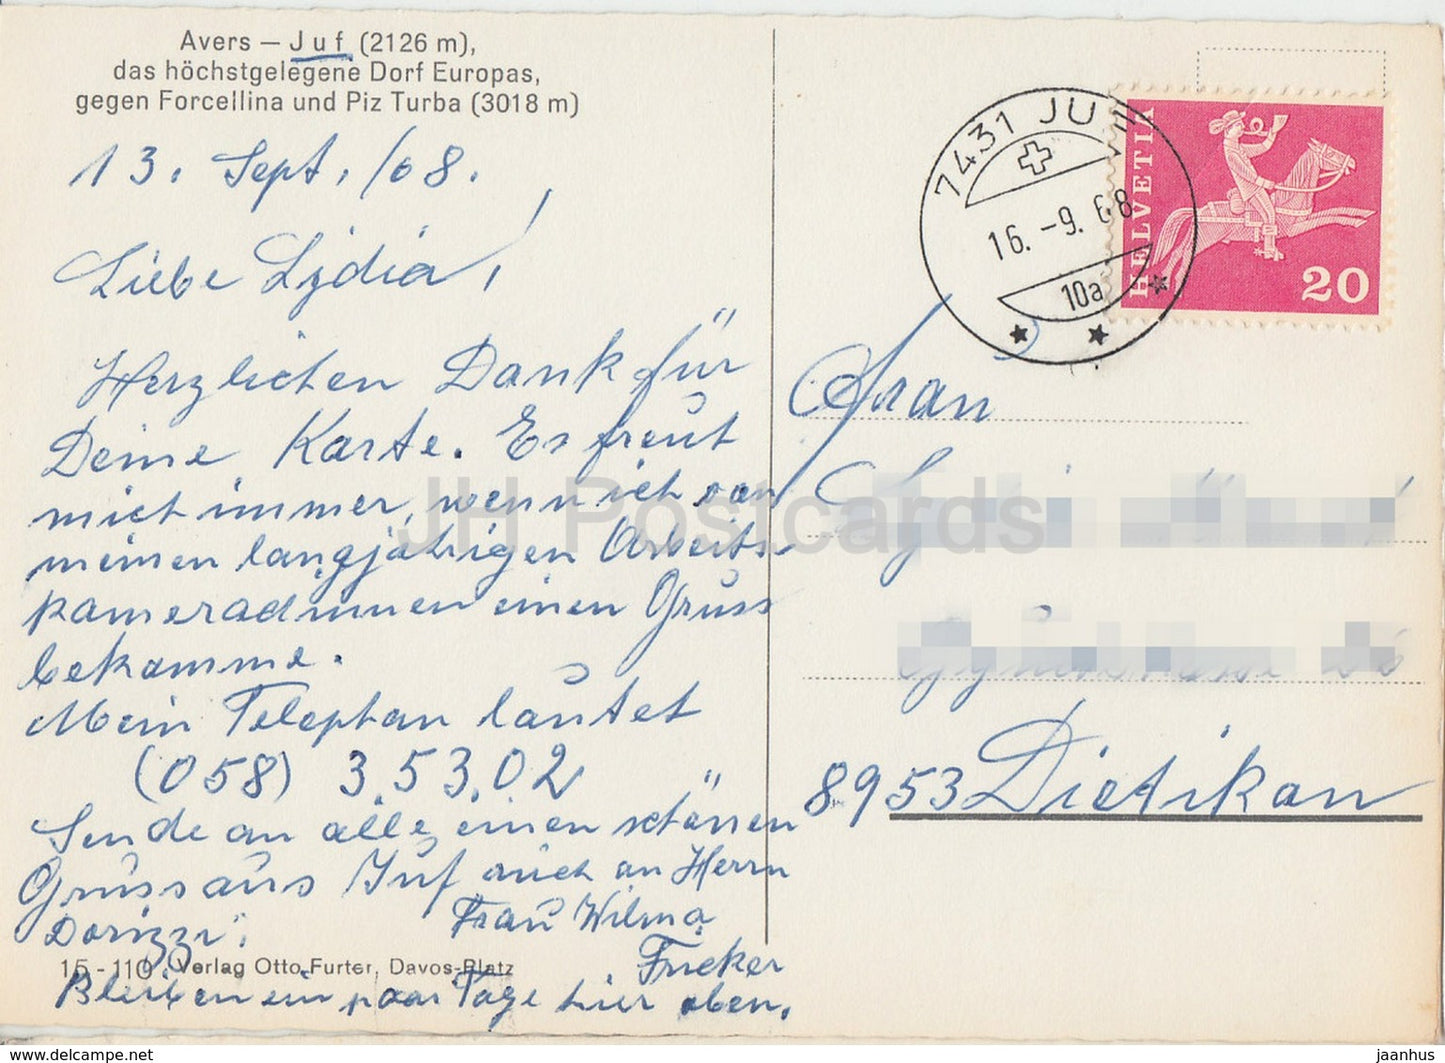 Avers — Juf (2126 m),
das höchstgelegene Dorf Europas,
gegen Forcellina und Piz Turba (3018 m)
13. Sept. /68.
Liebe Lydia!
Herzlichen Dank für
Deine Karte. Es freut
mich immer, wenn ich von
meinen langjährigen Arbeits-
kameradinnen einen Gruss
bekomme.
Mein Telephon lautet
(058) 3.53.02
Sende an alle einen schönen
Gruss aus Juf auch an Herrn
Dorizzi.
Frau Wilma
Fricker
15-110 Verlag Otto Furter, Davos-Platz
Bleiben ein paar Tage hier oben.
7431 JUF
16.-9.68
10a
HELVETIA
20
Frau
8953 Dietikon
JH Postcards
akpool.com
jaanhus